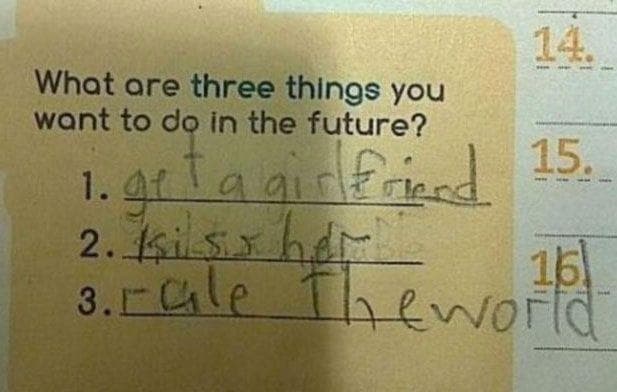 14.
What are three things you
want to do in the future?
15.
1. get a girlfriend
2. kissx her
16.
3. rule the world